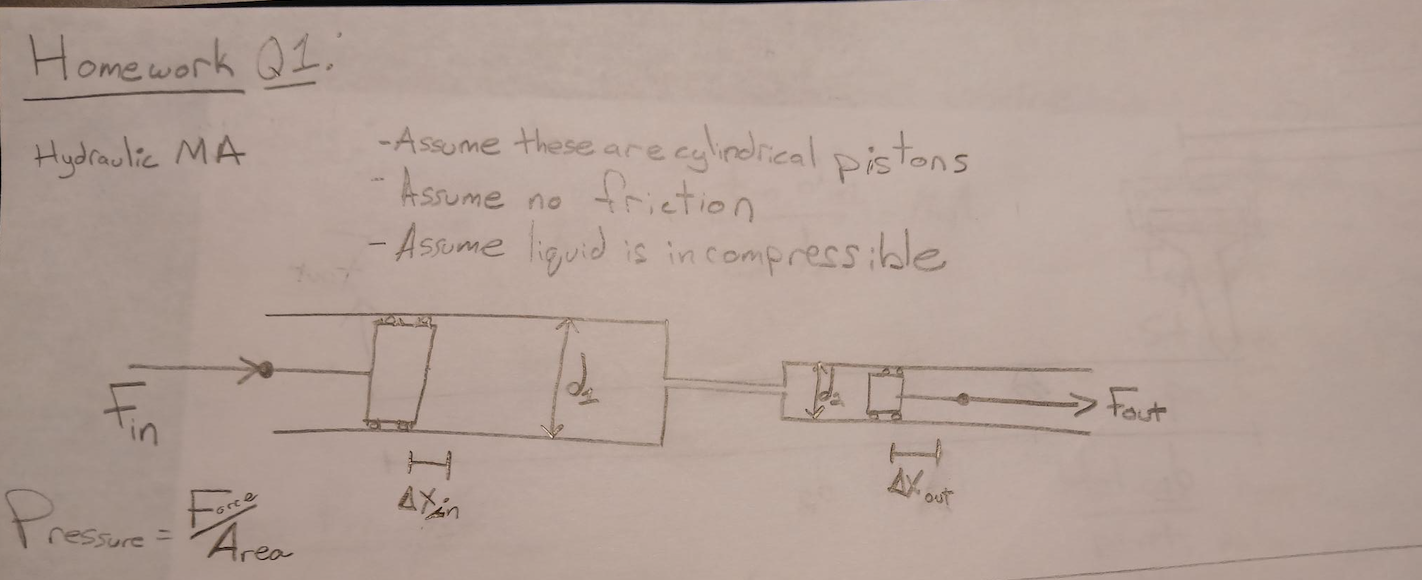 Homework Q1:
Hydraulic MA
-Assume these are cylindrical pistons
- Assume no friction
- Assume liquid is incompressible
Fin
d1
d2
Fout
ΔXin
ΔXout
Pressure = Force/Area